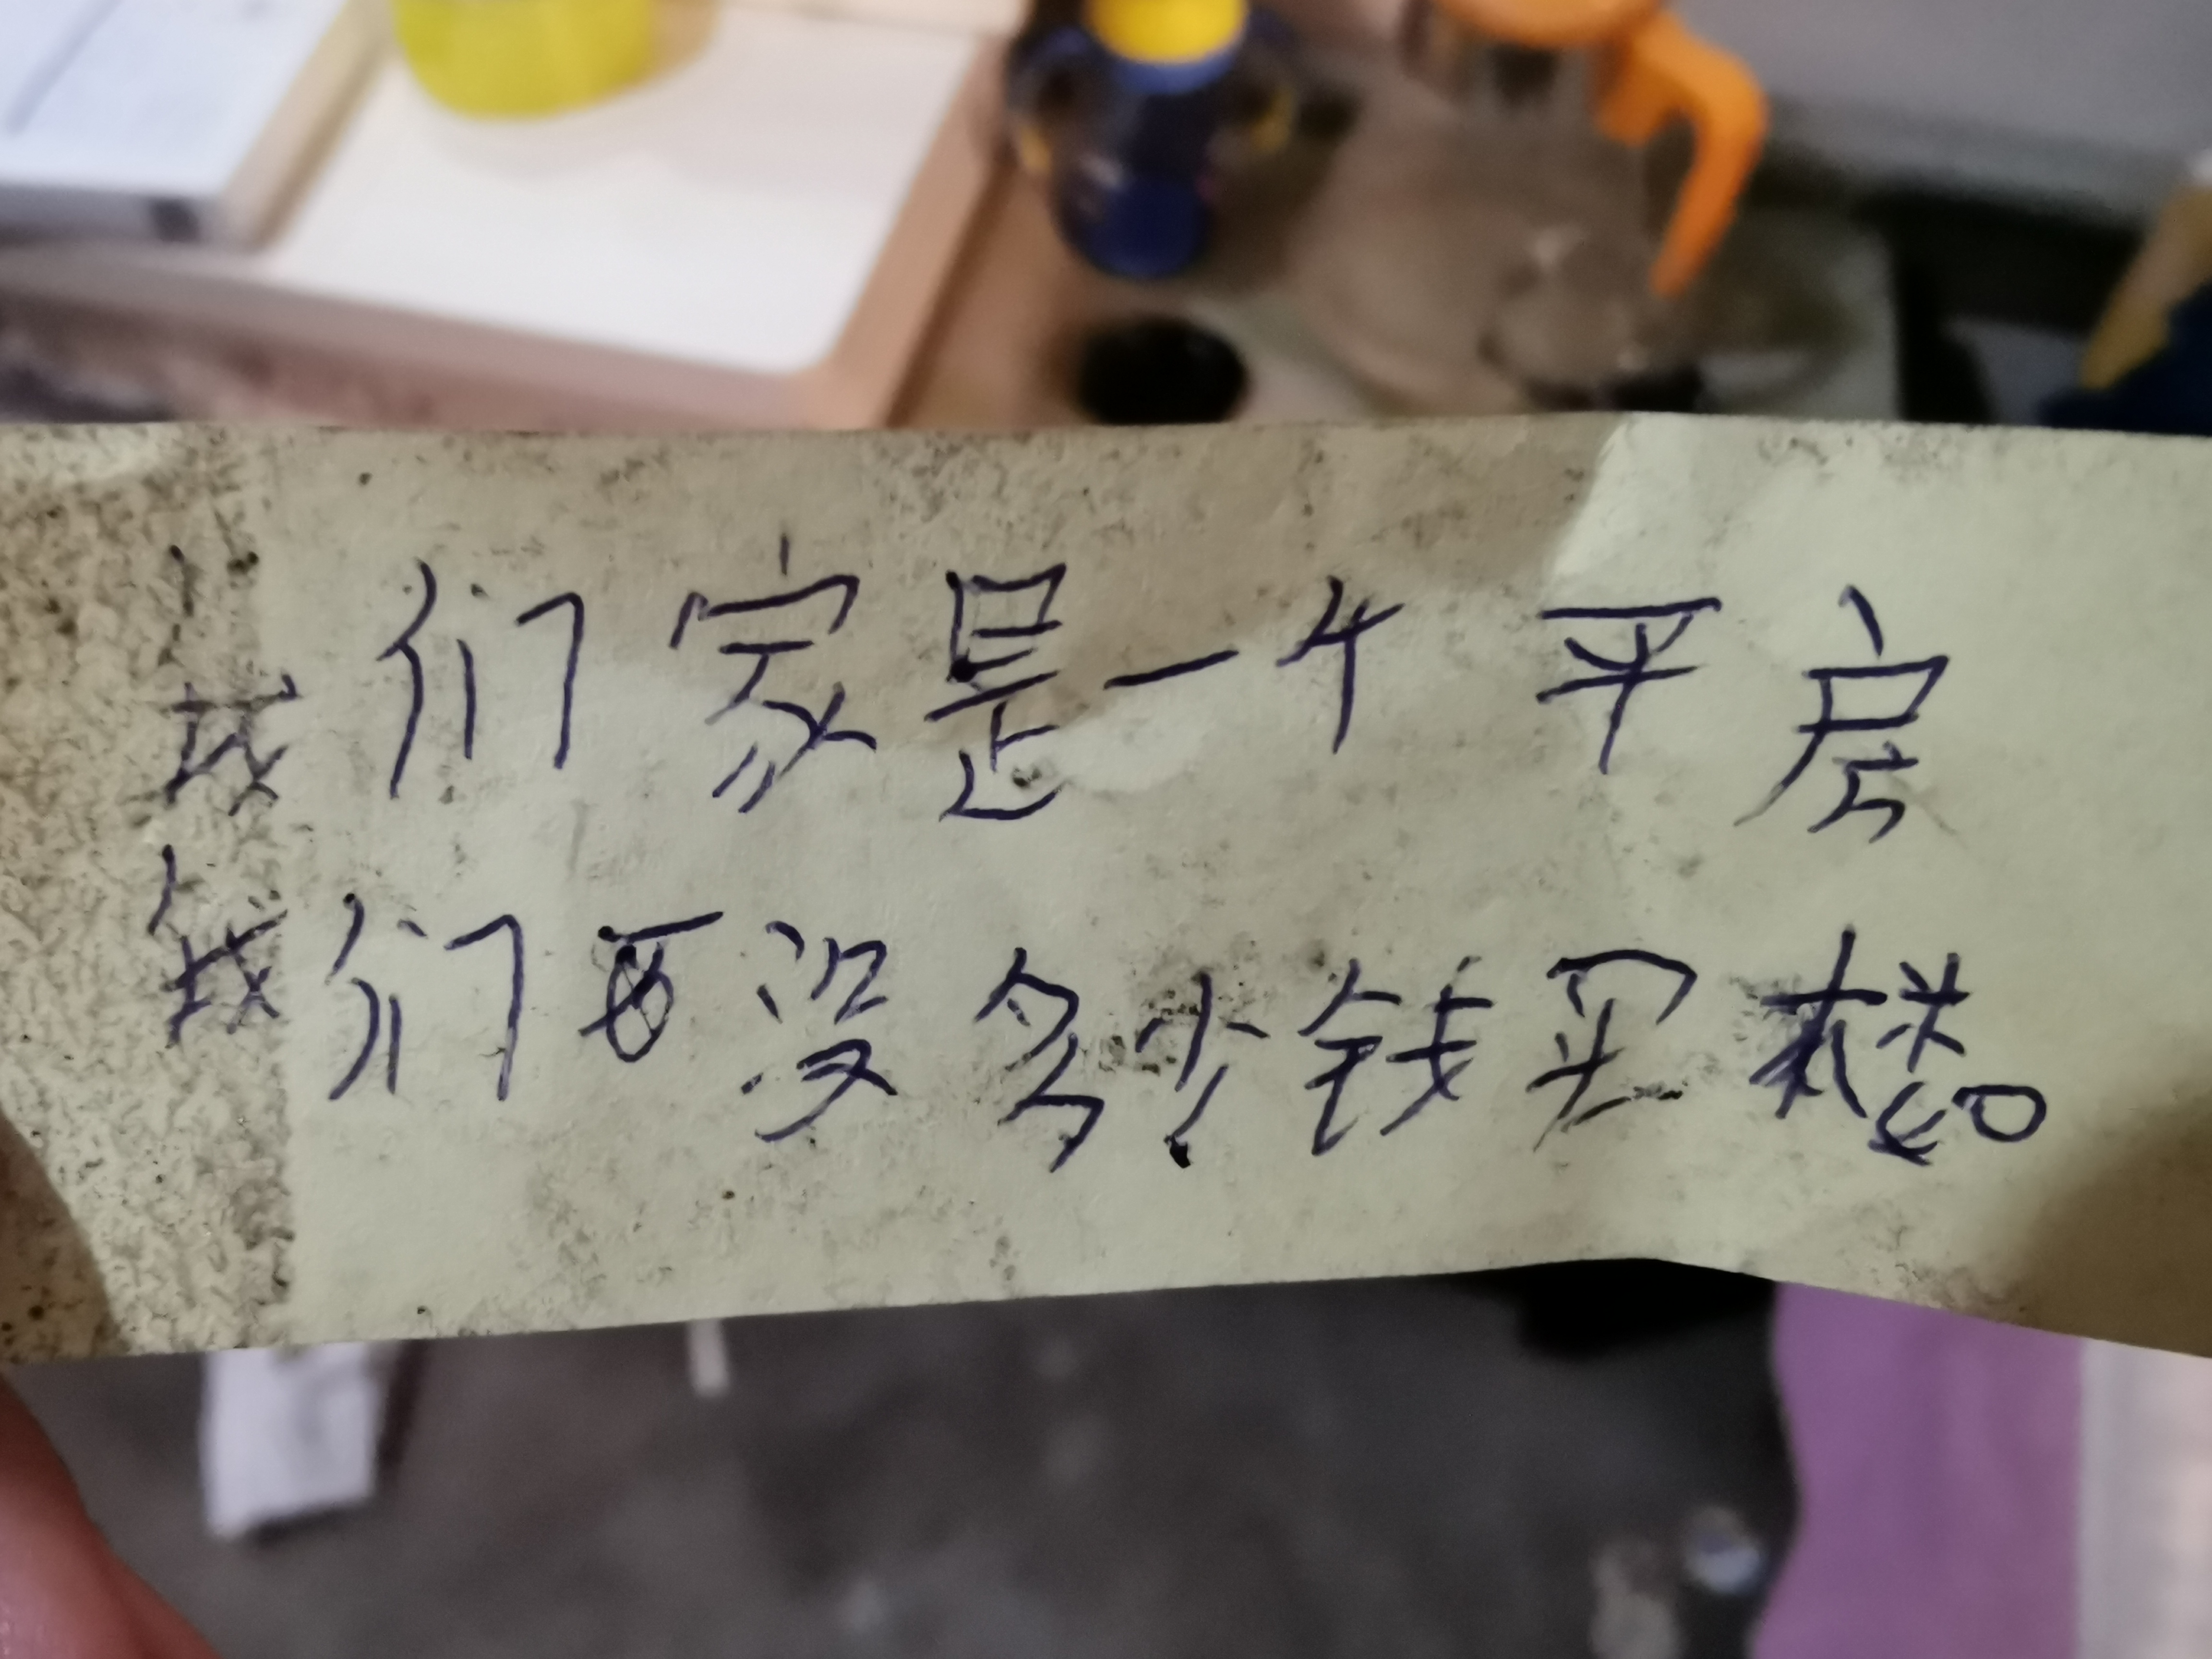 我们家是一个平房
我们要没多少钱买楼。